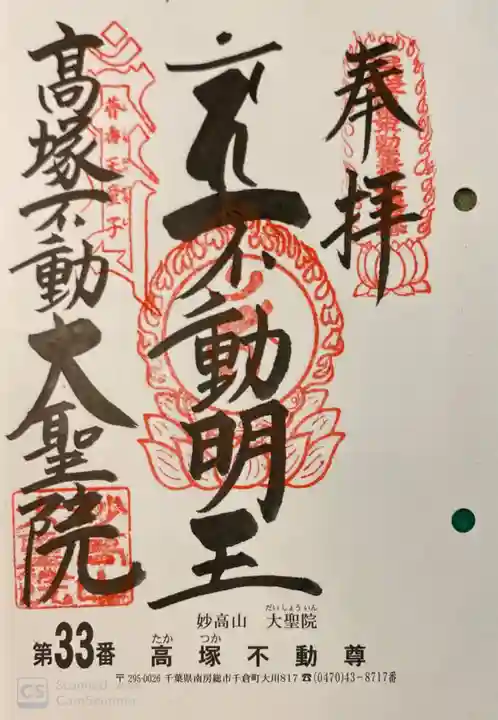 奉拝
不動明王
高塚不動大聖院
普壽王童子
妙高山 大聖院
だいしょういん
第33番 高塚不動尊
たか つか
〒295-0026 千葉県南房総市千倉町大川817 ☎(0470)43-8717番
CS Scanned with
CamScanner